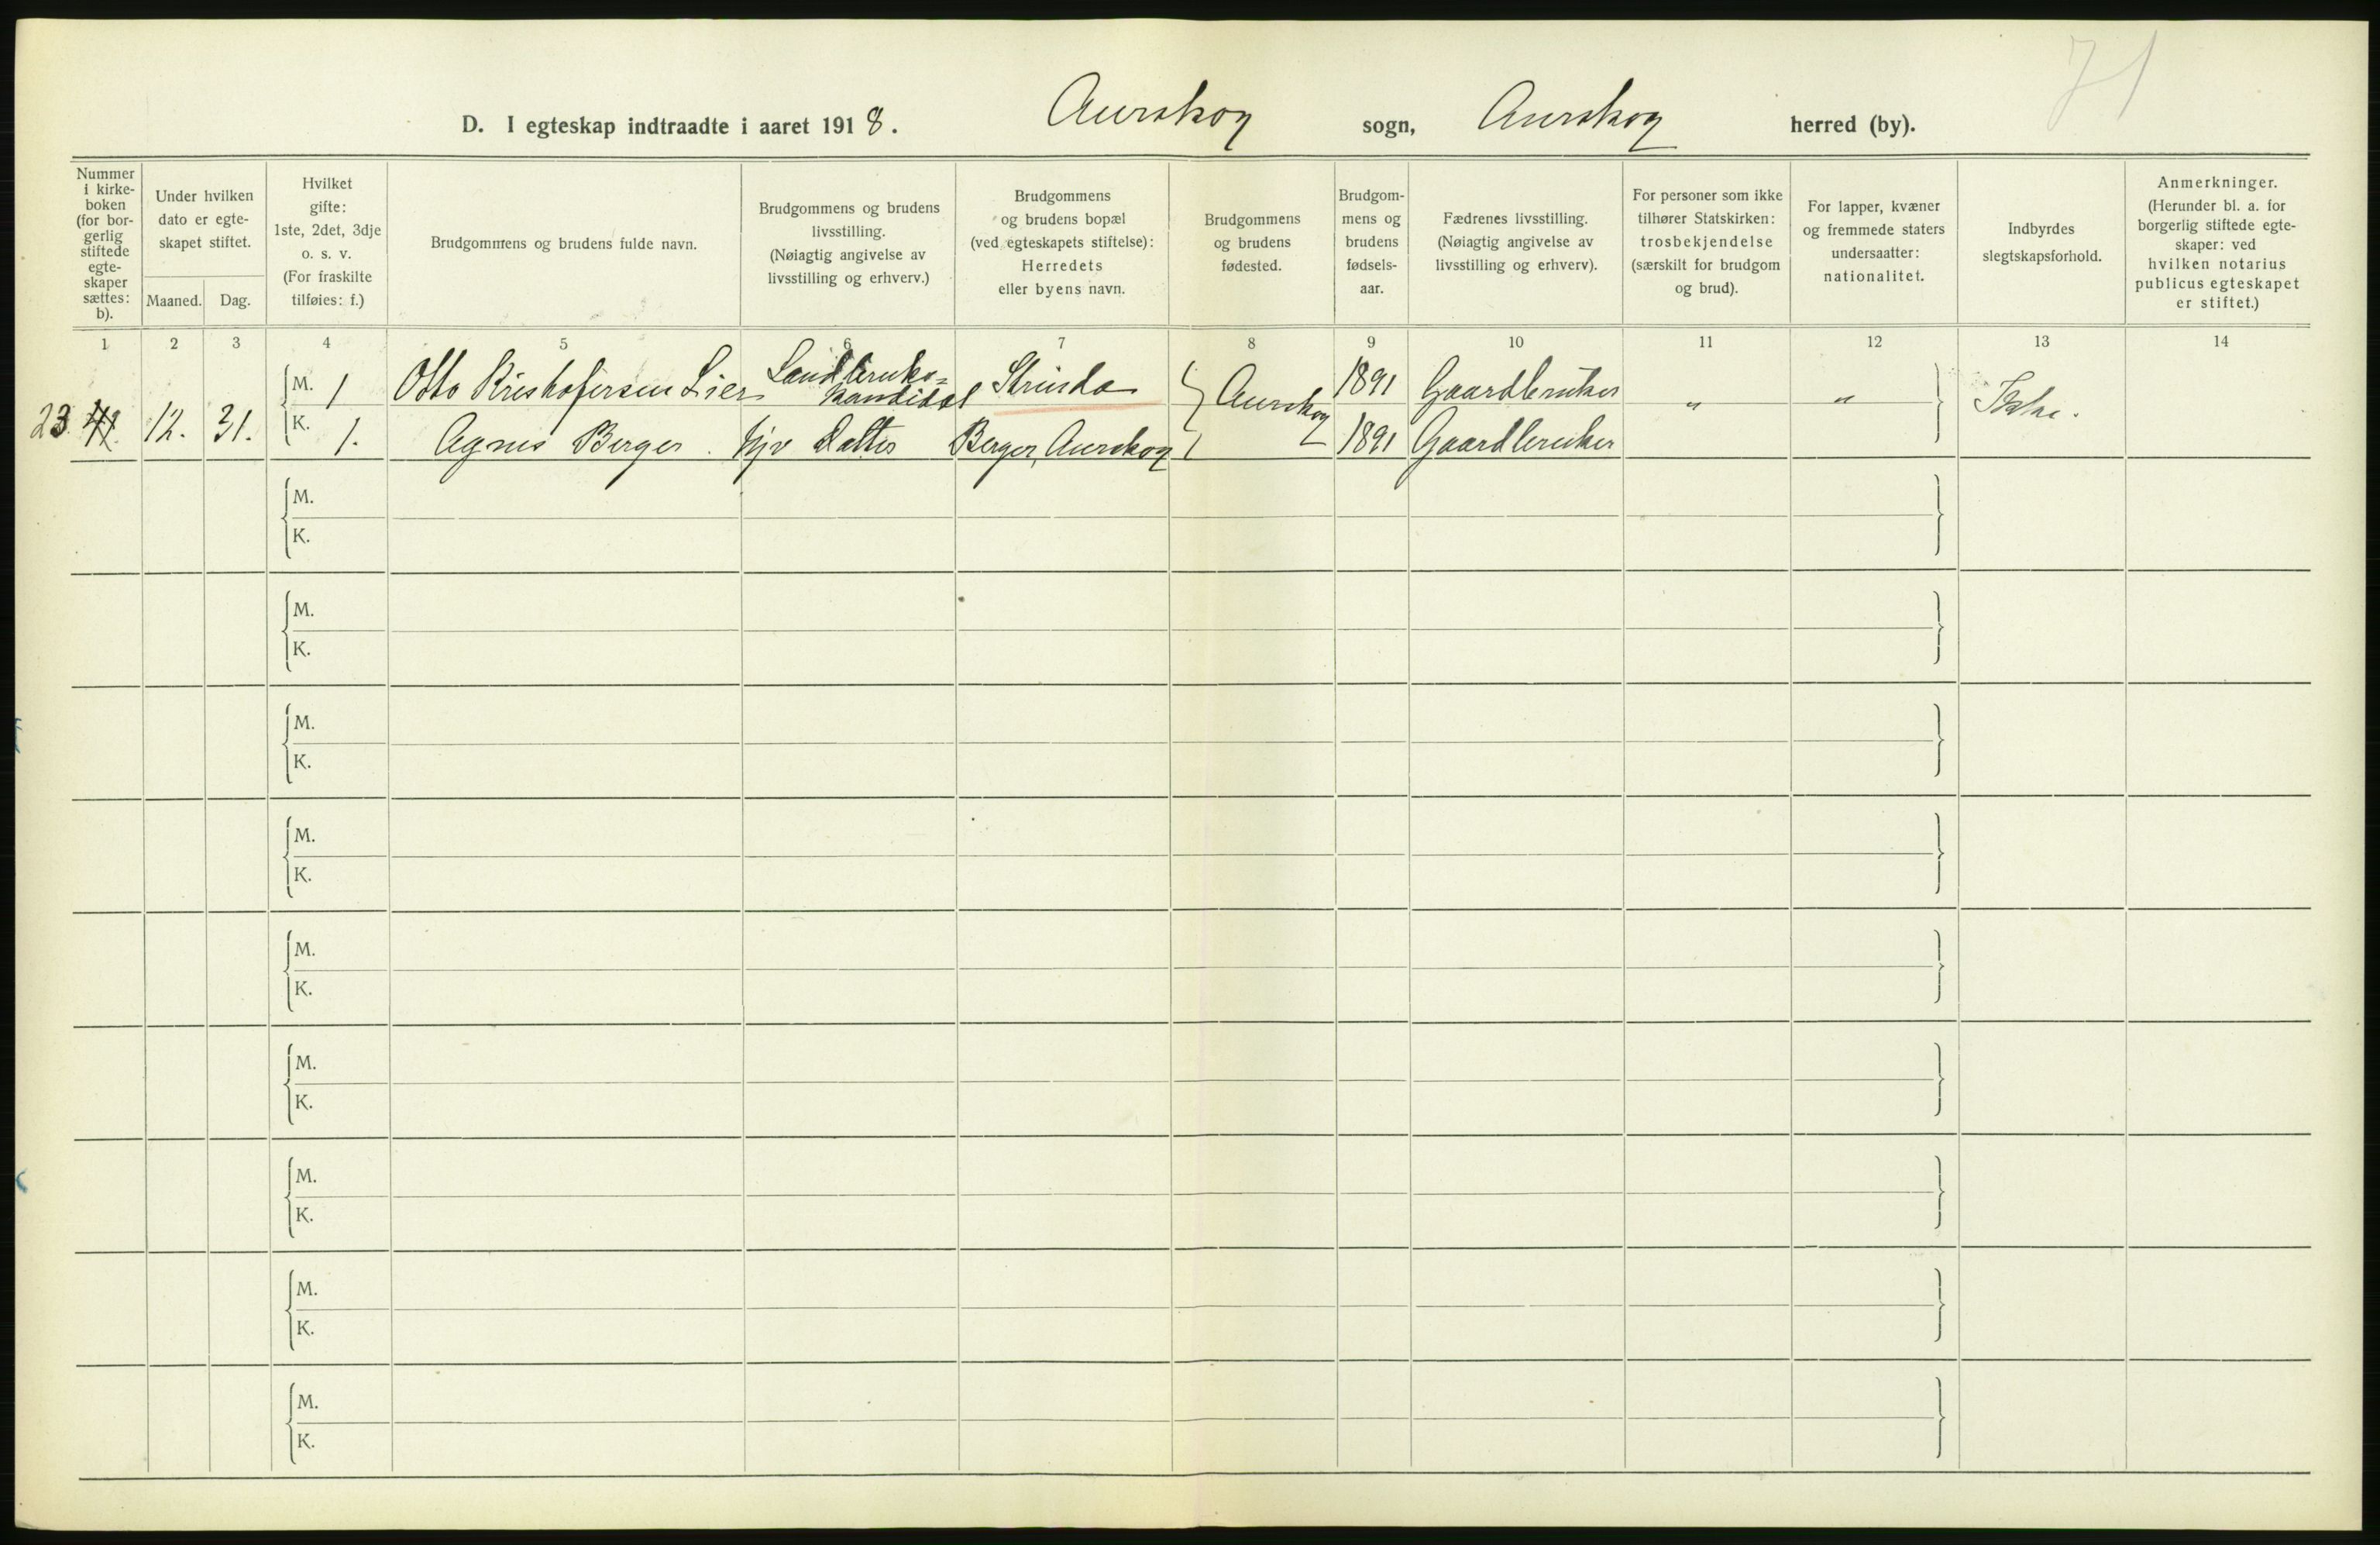 71
D. I egteskap indtraadte i aaret 1918. Aurskog sogn, Aurskog herred (by).
Nummer
i kirke-
boken
(for bor-
gerlig
stiftede
egte-
skaper
sættes:
b).
Under hvilken
dato er egte-
skapet stiftet.
Maaned. Dag.
Hvilket
gifte:
1ste, 2det, 3dje
o. s. v.
(For fraskilte
tilføies: f.)
Brudgommens og brudens fulde navn.
Brudgommens og brudens
livsstilling.
(Nøiagtig angivelse av
livsstilling og erhverv.)
Brudgommens
og brudens bopæl
(ved egteskapets stiftelse):
Herredets
eller byens navn.
Brudgommens
og brudens
fødested.
Brudgom-
mens og
brudens
fødsels-
aar.
Fædrenes livsstilling.
(Nøiagtig angivelse av
livsstilling og erhverv).
For personer som ikke
tilhører Statskirken:
trosbekjendelse
(særskilt for brudgom
og brud).
For lapper, kvæner
og fremmede staters
undersaatter:
nationalitet.
Indbyrdes
slegtskapsforhold.
Anmerkninger.
(Herunder bl. a. for
borgerlig stiftede egte-
skaper: ved
hvilken notarius
publicus egteskapet
er stiftet.)
1 2 3 4 5 6 7 8 9 10 11 12 13 14
23 41. 12. 31.
M. 1 Otto Kristofersen Lier Landbruks-
kandidat Strinda Aurskog 1891 Gaardbruker " " Ikke.
K. 1. Agnes Berger. hjv datter Berger, Aurskog 1891 Gaardbruker
M.
K.
M.
K.
M.
K.
M.
K.
M.
K.
M.
K.
M.
K.
M.
K.
M.
K.